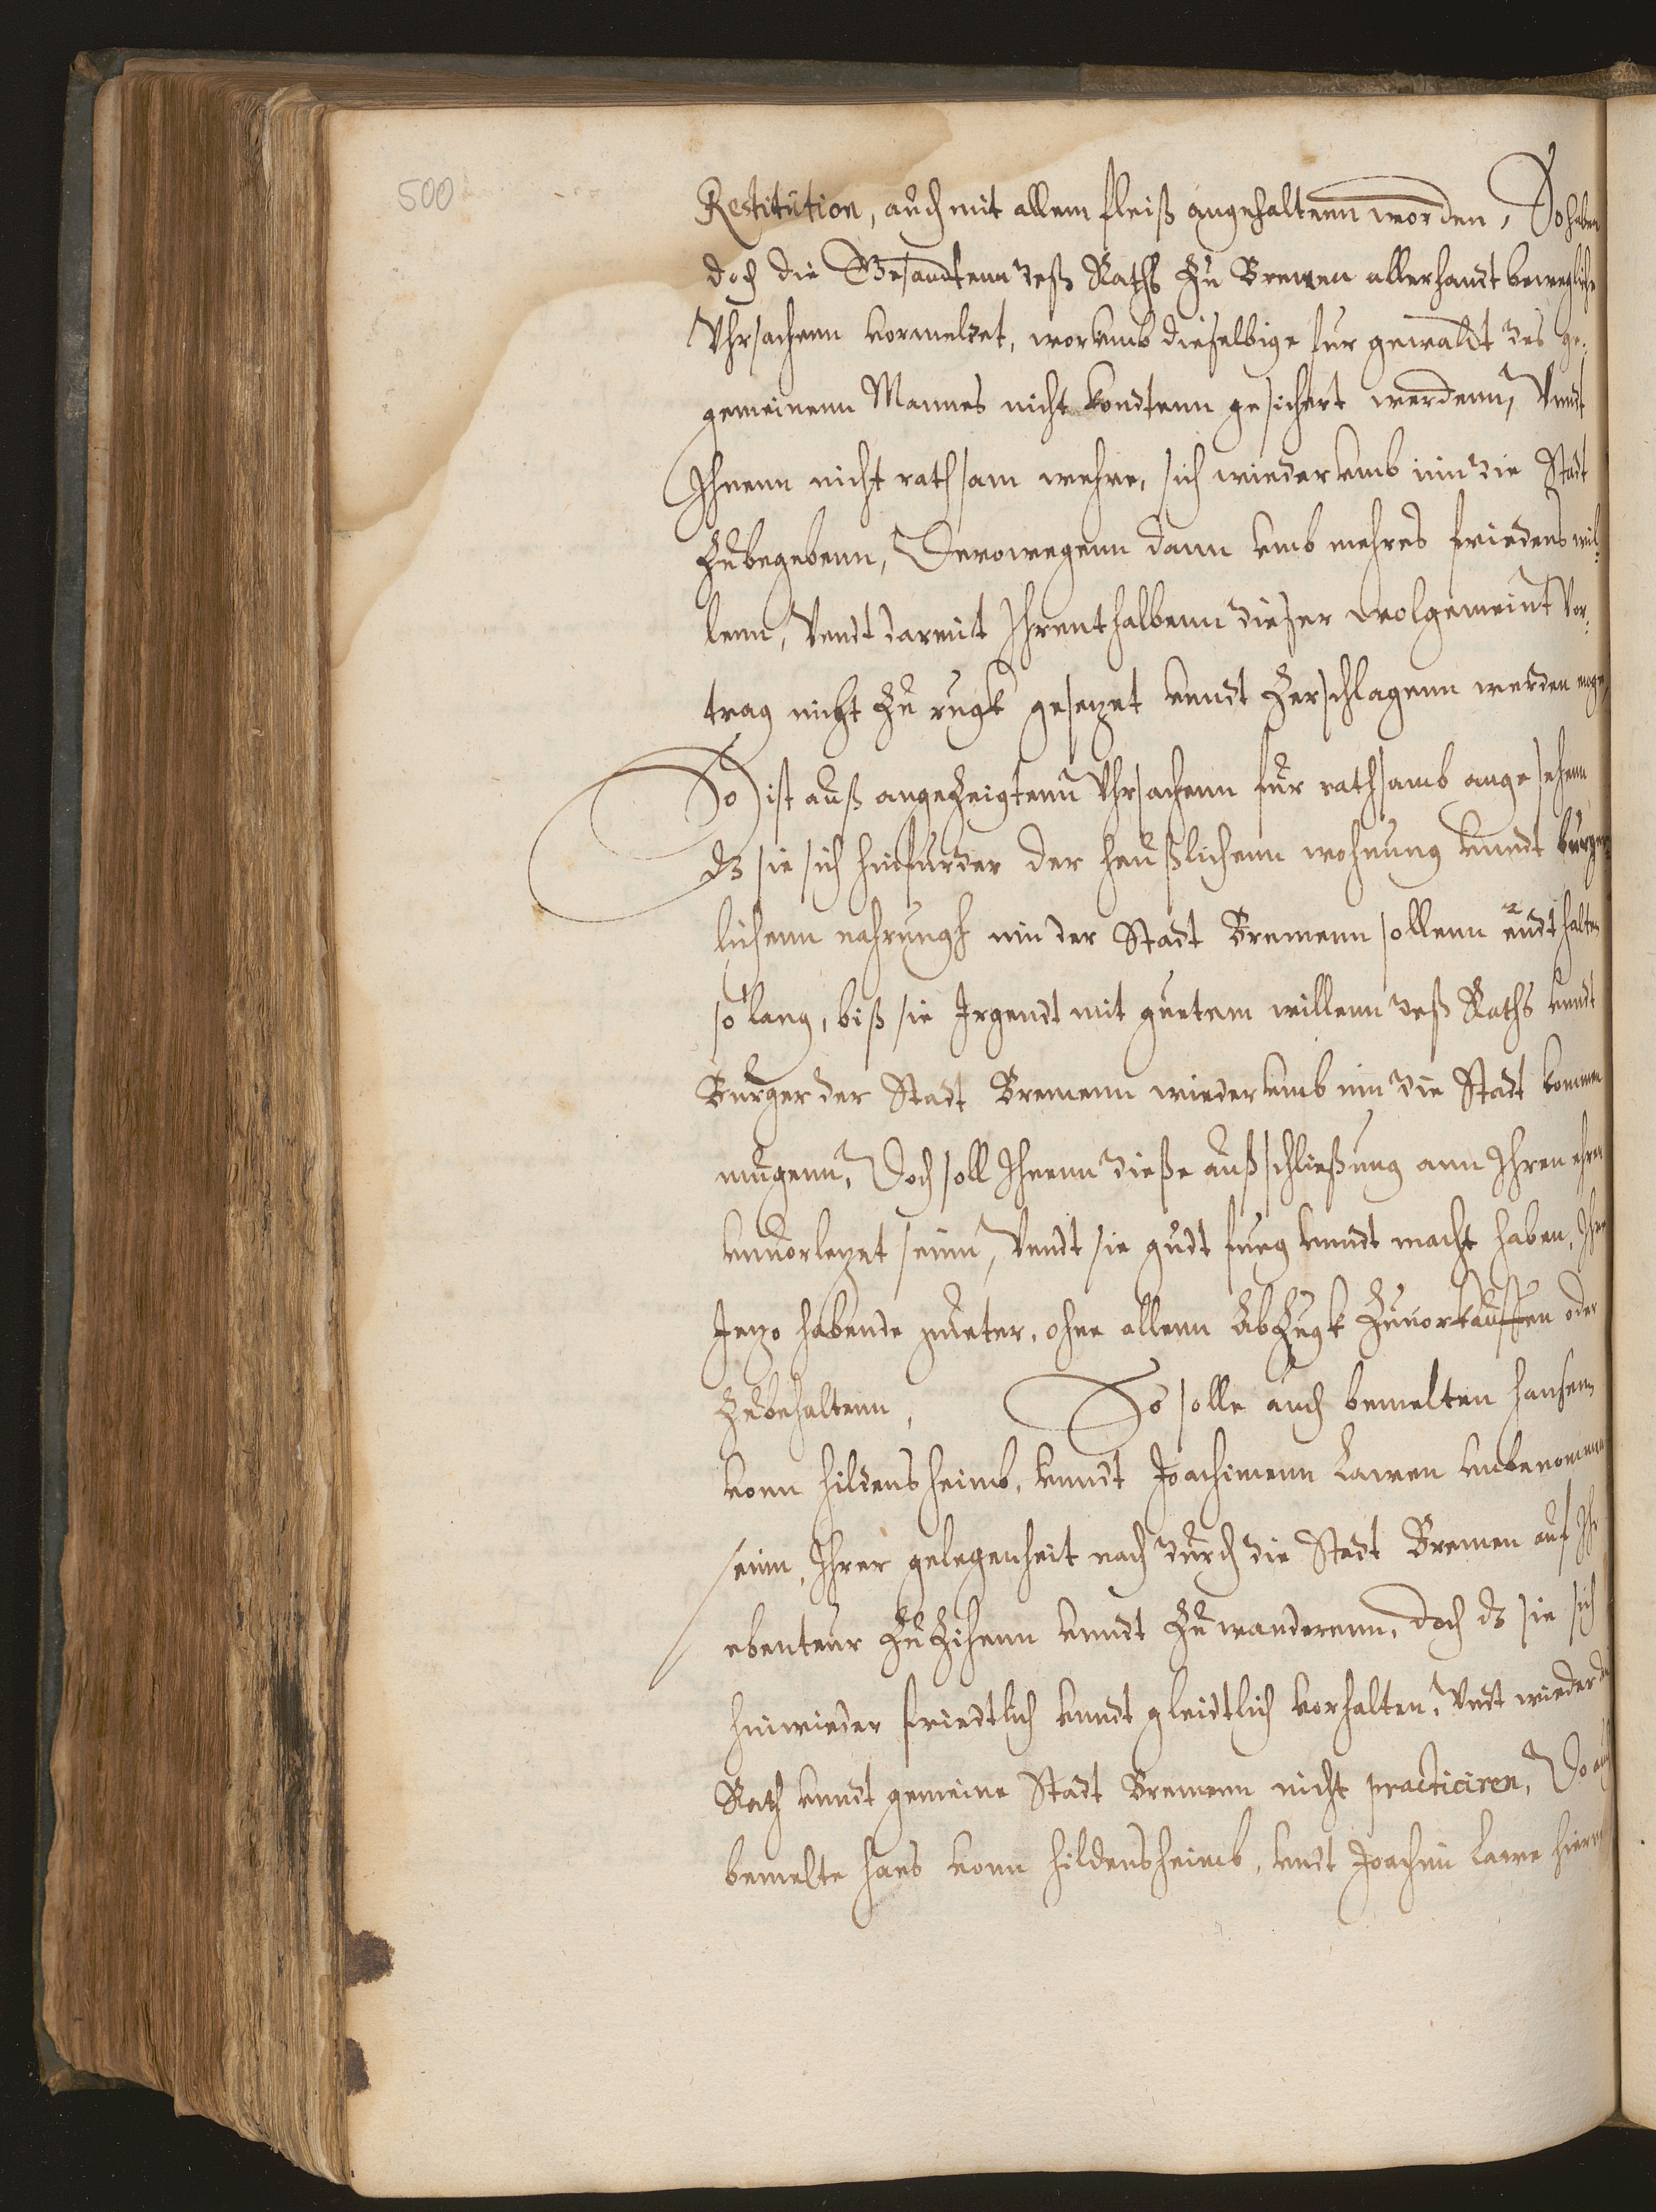 500
Restitution, auch mit allem fleiß angehaltenn worden, So haben
doch die Gesandtenn deß Raths zu Bremen allerhandt bewegliche
Vhrsachenn vormeldet, worumb dieselbige fur gewaldt des ge-
gemeinenn Mannes nicht kondtenn gesichert werdenn, Vnndt
Ihnenn nicht rathsam wehre, sich wiederumb inn die Stadt
zubegebenn, Derowegenn dann vmb mehres friedens wil-
lenn, Vndt darmit Ihrenthalbenn dießer wolgemeint Vor-
trag nicht zu rugk gesezet vnndt zerschlagenn werden moge,
So ist auß angezeigtenn Vhrsachenn fur rathsamb angesehenn
dz sie sich hinfurder der heußlichenn wohnung vnndt burger-
lichenn nahrungh inn der Stadt Bremenn sollenn endthalten
so lang, biß sie Irgendt mit guetem willenn deß Raths vnndt
Burger der Stadt Bremenn wiederumb inn die Stadt kommen
mugenn, Doch soll Ihnenn dieße außschließung ann Ihren ehren
vnuorlezet seinn, Vndt sie gudt fueg vnndt macht haben, Ihre
Jezo habende gueter, ohne allenn Abzugk zuuorkauffen oder
zubehaltenn, So solle auch bemelten Hansenn
vonn Hildensheimb, vnndt Joachimenn Lawen vnbenommen
seinn, Ihrer gelegenheit nach durch die Stadt Bremen auf Ihr
ebenteur zuzihenn vnndt zuwanderenn, doch dz sie sich
hinwieder friedtlich vnndt gleidtlich vorhalten, Vndt wieder den
Rath vnndt gemeine Stadt Bremenn nicht practiciren, Do auch
bemelte Hans vonn Hildensheimb, vndt Joachim Lawe